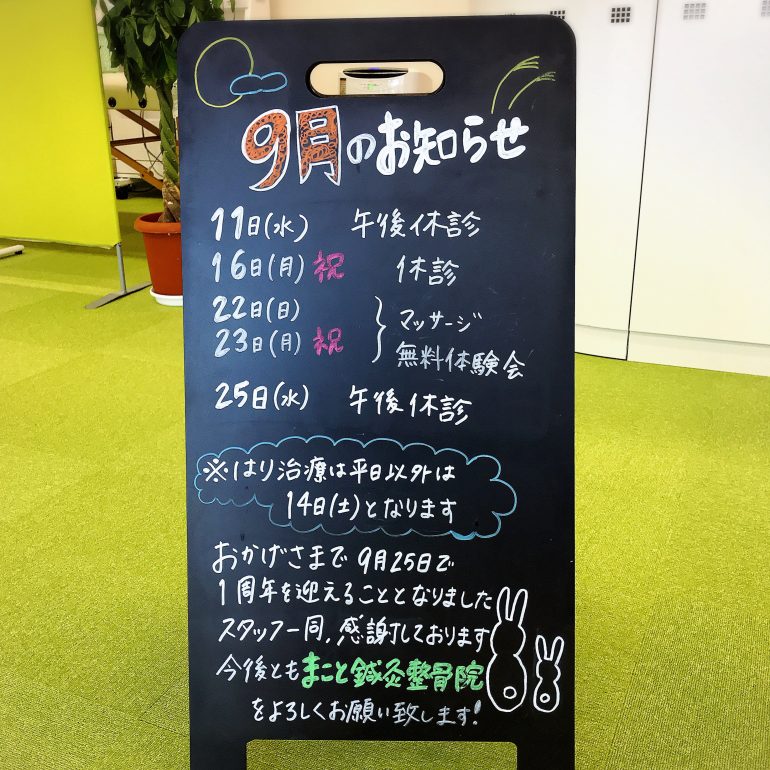 9月のお知らせ
11日(水) 午後休診
16日(月) 祝 休診
22日(日)
23日(月) 祝
マッサージ
無料体験会
25日(水) 午後休診
※はり治療は平日以外は
14日(土)となります
おかげさまで 9月25日で
1周年を迎えることとなりました
スタッフ一同、感謝しております
今後とも まこと鍼灸整骨院
をよろしくお願い致します!